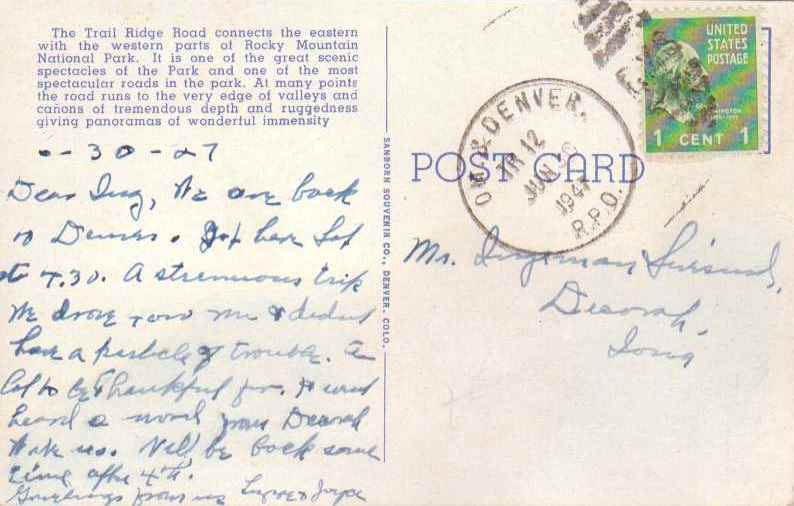 The Trail Ridge Road connects the eastern
with the western parts of Rocky Mountain
National Park. It is one of the great scenic
spectacles of the Park and one of the most
spectacular roads in the park. At many points
the road runs to the very edge of valleys and
cañons of tremendous depth and ruggedness
giving panoramas of wonderful immensity
30-27
Dear Ing, We are back
to Denver. Got here Sat
at 7.30. A strenuous trip
We drove 7000 mi & didnt
have a particle of trouble. A
lot to be thankful for.
heard a word from Decorah
Will be back some
time after 4th.
Greetings from us
SANBORN SOUVENIR CO., DENVER, COLO.
POST CARD
DENVER.
TR 12
JUN 30
194
R.P.O.
UNITED
STATES
POSTAGE
1 CENT 1
Mr. Ingeman
Decorah,
Iowa